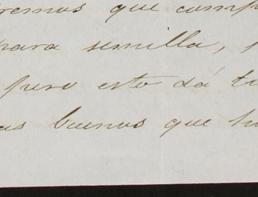 remos que comp
para semilla,
pero esto dá tr
as buenos que h